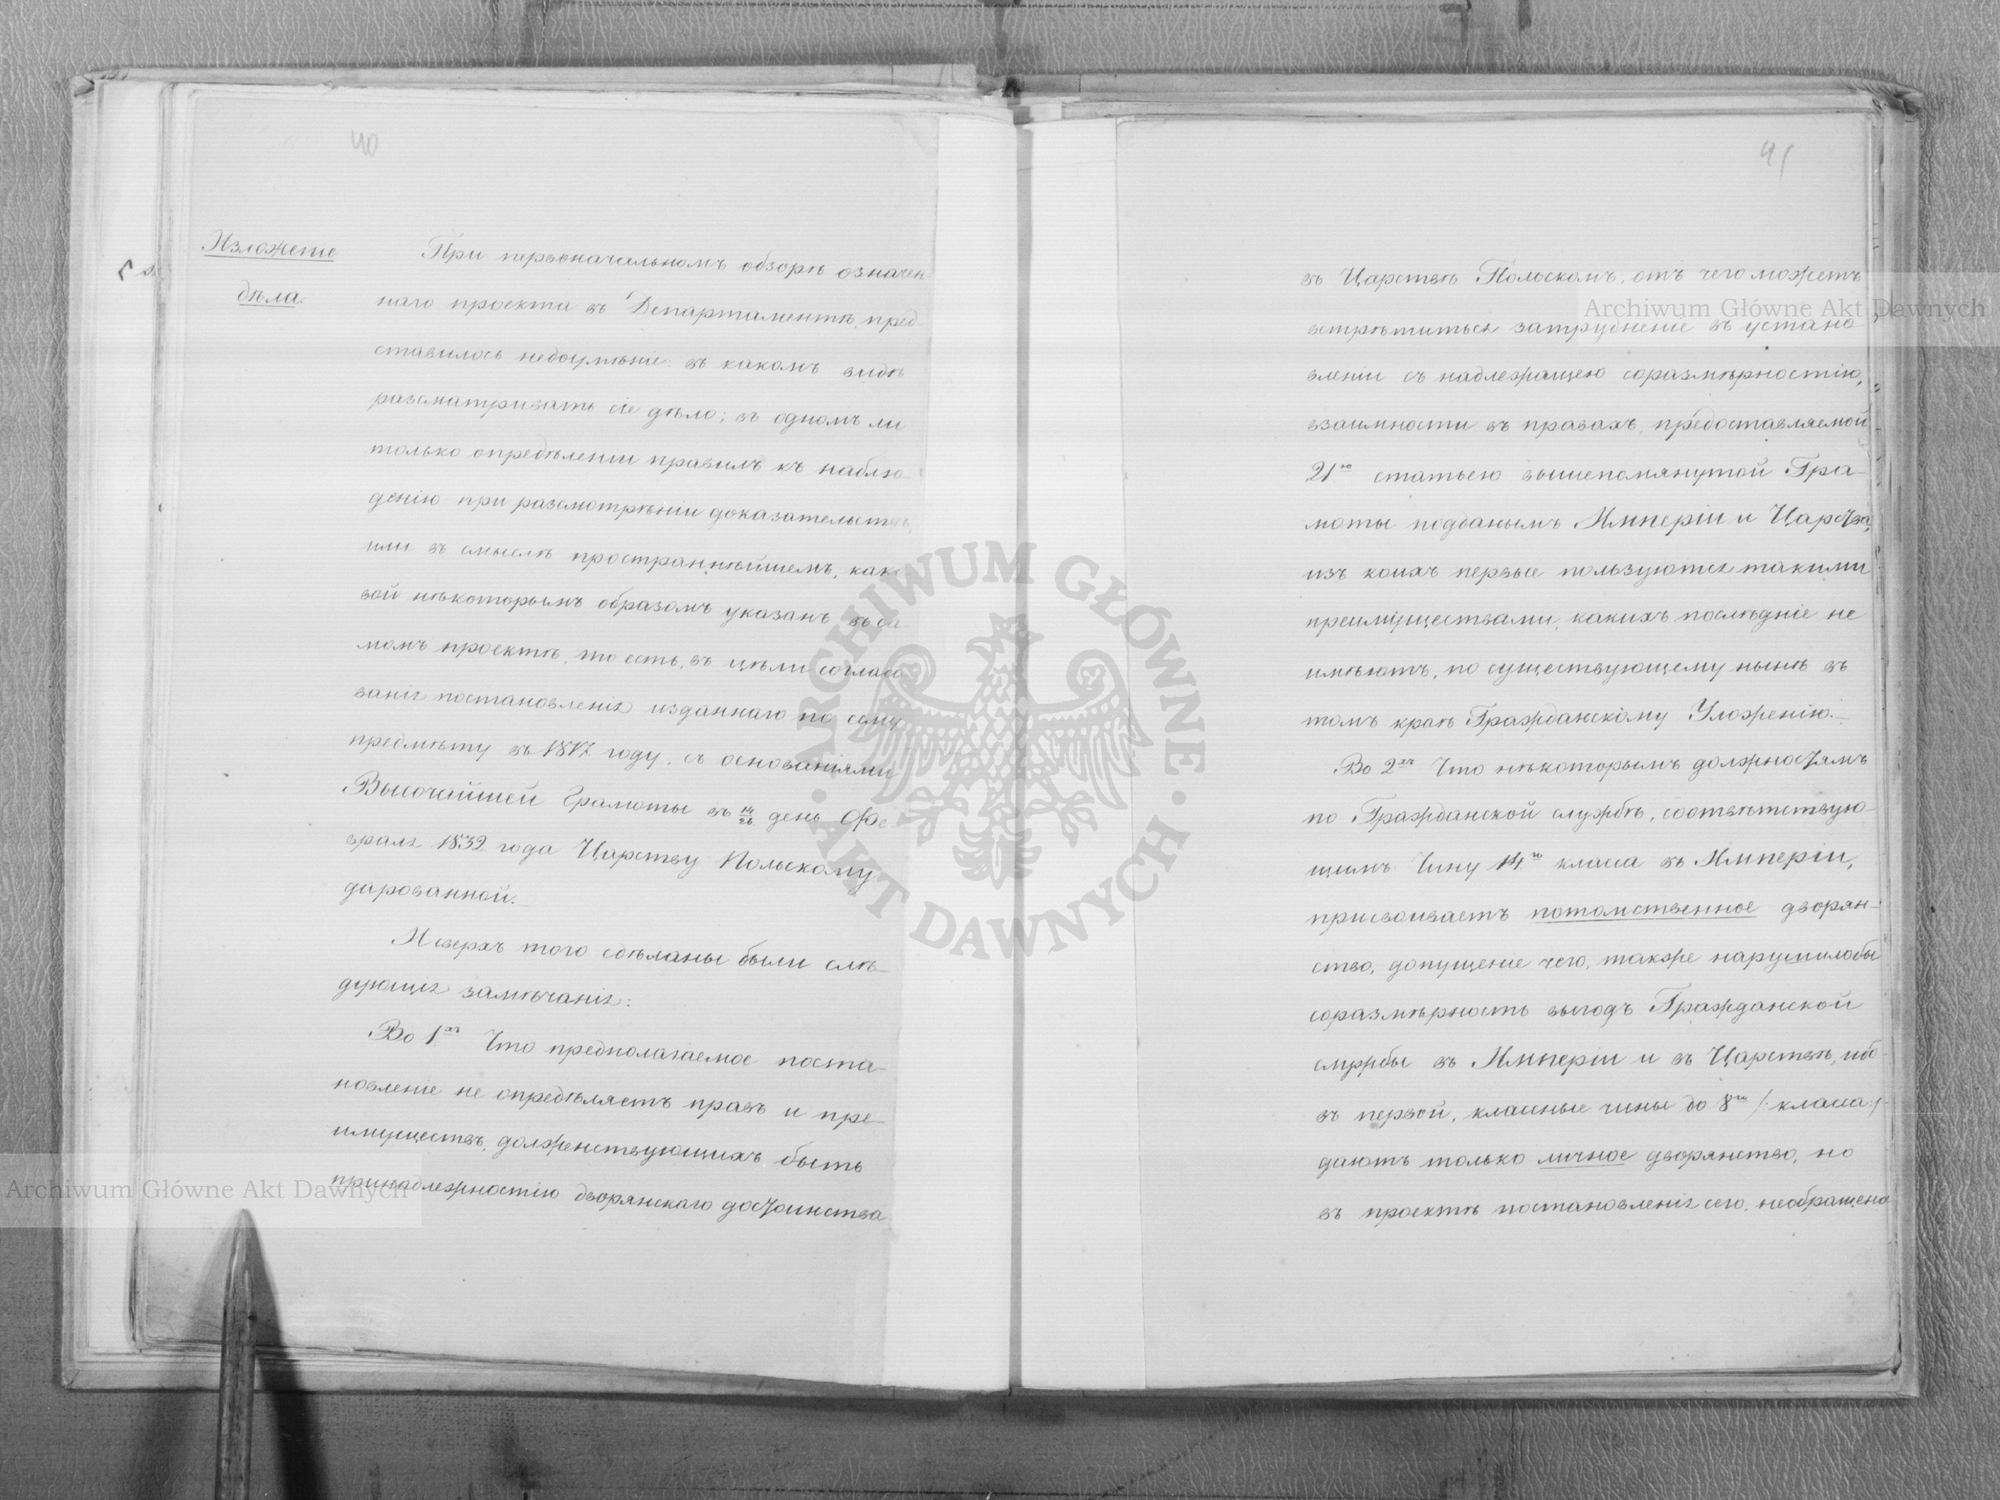 40
Изложеніе
дѣла.
При первоначальномъ обзорѣ означен
наго проекта въ Департаментѣ, пред-
ставилось недоумѣніе: въ какомъ видѣ
разсматривать сіе дѣло; въ одномъ ли
только опредѣленіи правилъ къ наблю-
денію при разсмотрѣніи доказательствъ,
или въ смыслѣ пространнѣйшемъ, како
вой нѣкоторымъ образомъ указанъ въ са
момъ проектѣ, то есть, въ цѣли согласо
ванія постановленія изданнаго по сему
предмѣту въ 1817 году, съ основаніями
Высочайшей Грамоты въ 14/26 день Фе
враля 1832 года Царству Польскому
дарованной.
И сверхъ того сдѣланы были слѣ-
дующія замѣчанія:
Во 1хъ Что предполагаемое поста-
новленіе не опредѣляетъ правъ и пре-
имуществъ, долженствующихъ быть
принадлежностію дворянскаго достоинства
41
въ Царствѣ Польскомъ, отъ чего можетъ
встрѣтиться затрудненіе въ устано-
вленіи съ надлежащею соразмѣрностію,
взаимности въ правахъ, предоставляемой
21ю статьею вышепомянутой Гра-
моты подданымъ Имперіи и Царства,
изъ коихъ первые пользуются такими
преимуществами, какихъ послѣдніе не
имѣютъ, по существующему нынѣ въ
томъ краѣ Гражданскому Уложенію.
Во 2хъ Что нѣкоторымъ должностямъ
по Гражданской службѣ, соотвѣтствую-
щимъ Чину 14го класса въ Имперіи,
присвоиваетъ потомственное дворян-
ство, допущеніе чего, также нарушилобы
соразмѣрность выгодъ Гражданской
службы въ Имперіи и въ Царствѣ, ибо
въ первой, классные чины до 8го /: класса :/
даютъ только личное дворянство, но
въ проектѣ постановленія сего, необращено
Archiwum Główne Akt Dawnych
Archiwum Główne Akt Dawnych
ARCHIWUM GŁÓWNE
AKT DAWNYCH